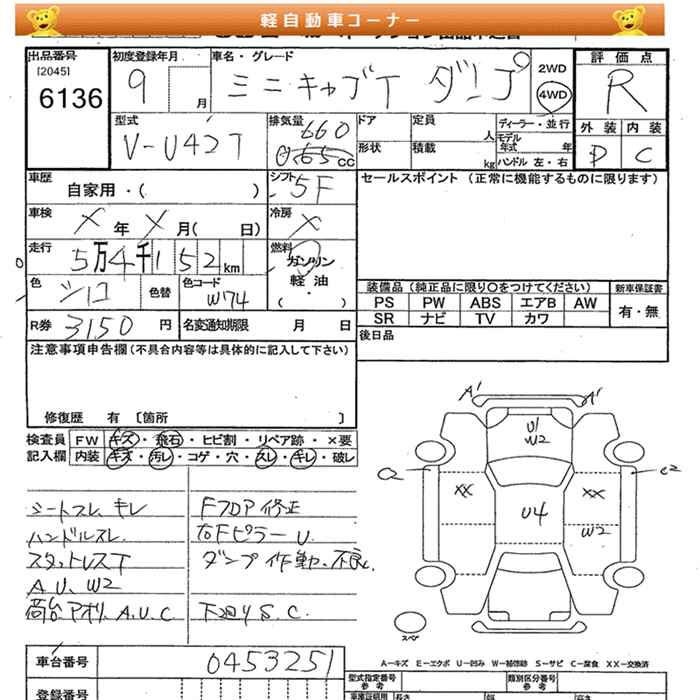 軽自動車コーナー
出品番号 [2045] 6136
初度登録年月 9 月
車名・グレード ミニキャブT ダンプ
2WD
4WD
評価点 R
外装 内装
D C
型式 V-U42T
排気量 660 0.65 cc
ドア
定員 人
形状
積載 kg
ディーラー・並行
モデル年式 年
ハンドル 左・右
車歴 自家用・( )
シフト 5F
セールスポイント (正常に機能するものに限ります)
車検 × 年 × 月( 日)
冷房 ×
走行 5万4千152km
燃料 ガソリン
軽油
( ・ )
色 シロ 色替
色コード W74
装備品 (純正品に限り○をつけてください)
新車保証書
PS PW ABS エアB AW
有・無
SR ナビ TV カワ
R券 3150 円
名変通知期限 月 日
後日品
注意事項申告欄 (不具合内容等は具体的に記入して下さい)
修復歴 有 〔箇所 〕
検査員 FW キズ・飛石・ヒビ割・リペア跡・×要
記入欄 内装 キズ・汚レ・コゲ・穴・スレ・キレ・破レ
シートスレ キレ
Fフロア修正
ハンドルスレ
右Fピラー U.
スタットレスT
ダンプ作動不良.
A U、W2
荷台アオリ、A.U.C
下廻りS.C.
A' A'
U1
W2
C2 C2
XX XX
U4
W2
スペア
A-キズ E-エクボ U-凹み W-補修跡 S-サビ C-腐食 XX-交換済
車台番号 0453251
型式指定番号
参考
類別区分番号
参考
登録番号
車庫証明用
長さ
幅
高さ